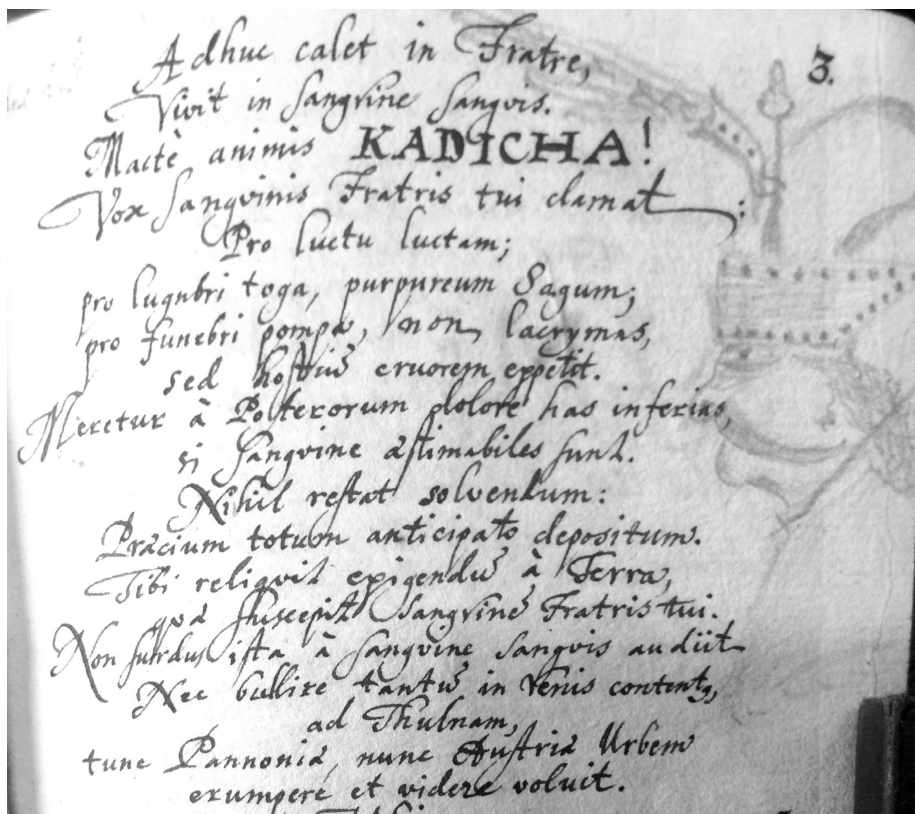 3.
Adhuc calet in Fratre,
Vivit in sangvine sangvis.
Macte animis KADICHA!
Vox sangvinis Fratris tui clamat:
Pro luctu luctam;
pro lugubri toga, purpureum Sagum;
pro funebri pompa, non lacrymas,
sed hostiũ cruorem expetit.
Meretur à Posterorum dolore has inferias,
si sangvine æstimabiles sunt.
Nihil restat solvendum:
Præcium totum anticipato depositum.
Tibi reliquit exigendũ à Terra,
quæ suscepit sangvinẽ Fratris tui.
Non surdus ista à sangvine sangvis audiit
Nec bullire tantũ in venis contentq,
ad Thulnam,
tunc Pannoniæ, nunc Austriæ Urbem
erumpere et videre voluit.